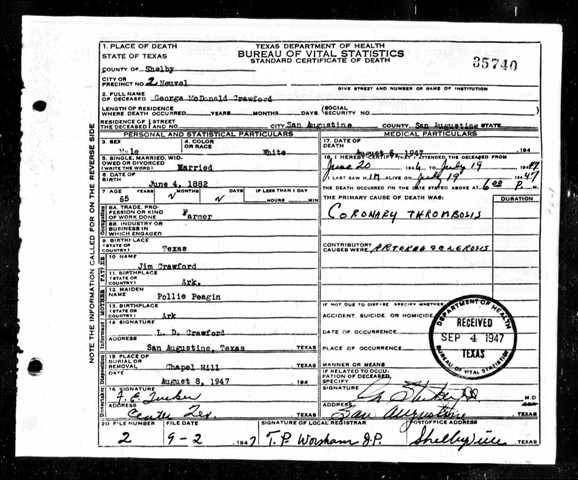 NOTE THE INFORMATION CALLED FOR ON THE REVERSE SIDE
1. PLACE OF DEATH
STATE OF TEXAS
TEXAS DEPARTMENT OF HEALTH
BUREAU OF VITAL STATISTICS
STANDARD CERTIFICATE OF DEATH
35740
COUNTY OF Shelby
CITY OR
PRECINCT NO. 2 Neuvel
GIVE STREET AND NUMBER OR NAME OF INSTITUTION
2. FULL NAME
OF DECEASED George McDonald Crawford
LENGTH OF RESIDENCE
WHERE DEATH OCCURRED YEARS MONTHS DAYS (SOCIAL SECURITY NO.)
RESIDENCE OF THE DECEASED STREET AND NO. CITY San Augustine COUNTY San Augustine STATE
PERSONAL AND STATISTICAL PARTICULARS
MEDICAL PARTICULARS
3. SEX Male
4. COLOR OR RACE White
17. DATE OF DEATH August 6, 1947 194
5. SINGLE, MARRIED, WIDOWED OR DIVORCED (WRITE THE WORD) Married
18. I HEREBY CERTIFY THAT I ATTENDED THE DECEASED FROM
June 20 194 TO July 19 1947
I LAST SAW HIM ALIVE ON July 19 1947
6. DATE OF BIRTH June 4, 1882
THE DEATH OCCURRED ON THE DATE STATED ABOVE AT 6:00 P. M.
7. AGE 65 YEARS MONTHS DAYS IF LESS THAN 1 DAY HOURS MIN
THE PRIMARY CAUSE OF DEATH WAS: DURATION
8A. TRADE, PROFESSION OR KIND OF WORK DONE Farmer
CORONARY THROMBOSIS
8B. INDUSTRY OR BUSINESS IN WHICH ENGAGED
9. BIRTHPLACE (STATE OR COUNTRY) Texas
CONTRIBUTORY CAUSES WERE: ARTERIOSCLEROSIS
10. NAME Jim Crawford
11. BIRTHPLACE (STATE OR COUNTRY) Ark.
12. MAIDEN NAME Pollie Feagin
13. BIRTHPLACE (STATE OR COUNTRY) Ark
IF NOT DUE TO DISEASE, SPECIFY WHETHER:
ACCIDENT, SUICIDE, OR HOMICIDE
14. SIGNATURE L. D. Crawford
DATE OF OCCURRENCE
ADDRESS San Augustine, Texas TEXAS
PLACE OF OCCURRENCE
DEPARTMENT OF HEALTH
RECEIVED
SEP 4 1947
TEXAS
BUREAU OF VITAL STATISTICS
15. PLACE OF BURIAL OR REMOVAL Chapel Hill TEXAS
MANNER OR MEANS
DATE August 8, 1947 194
IF RELATED TO OCCUPATION OF DECEASED, SPECIFY
16. SIGNATURE F. E. Tucker
SIGNATURE M.D.
ADDRESS Center Tex. TEXAS
ADDRESS San Augustine TEXAS
20. FILE NUMBER 2
FILE DATE 9-2 1947
SIGNATURE OF LOCAL REGISTRAR T. P. Worsham J.P.
POSTOFFICE ADDRESS Shelbyville TEXAS